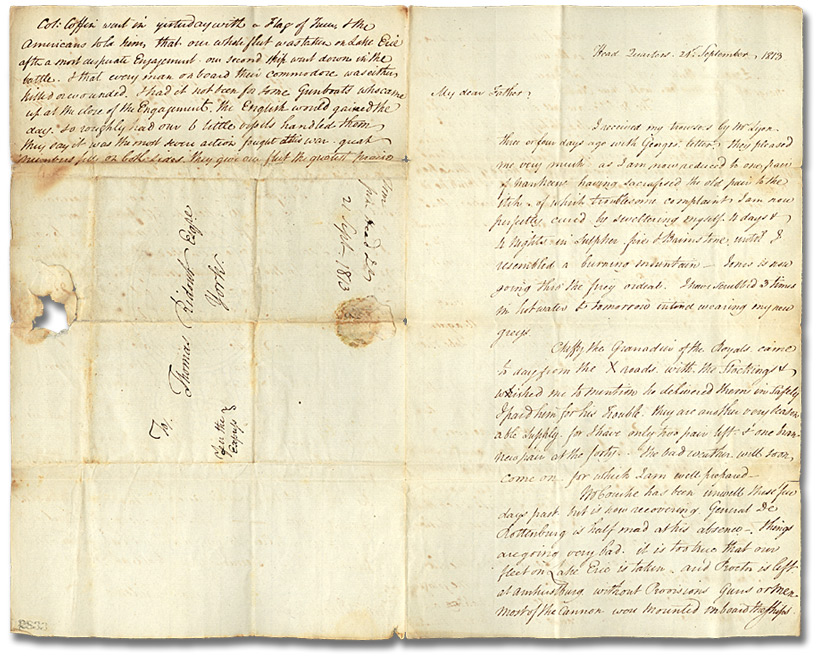 Head Quarters. 21st September, 1813
My dear Father,
I received my trowsers by Mr Lyon
three or four days ago with Georges letter, they pleased
me very much as I am now reduced to one pair
of nankeens having sacrificed the old pair to the
Itch - of which troublesome complaint I am now
perfectly cured by sweltering myself 4 days &
4 Nights in Sulpher fire & Brimstone, until I
resembled a burning mountain - Jones is now
going thro the firey ordeal. I have scrubbed 3 times
in hot water & tomorrow intend wearing my new
greys.
Cheffy the Granadier of the Royals came
to day from the X roads. with the Stockings &
wished me to mention he delivered them in Safety
I paid him for his Trouble. they are another very season
able Supply. for I have only two pair left & one bran
new pair at the forty. The bad weather will soon
come on. for which I am well prepared -
has been unwell these few
days past. but is now recovering General De
Rottenburg is half mad at his absence - Things
are going very bad. it is too true that our
fleet on Lake Erie is taken. and Proctor is left
at amherstburg without Provisions Guns or Men
most of the Cannon were mounted onboard the ships.
Col: Coffin went in yesterday with a Flag of Truce, & the
Americans told him, that our whole fleet was taken on Lake Erie
after a most desperate Engagement. our second ship went down in the
battle. & that every man on board their commodore was either
killed or wounded. & had it not been for some Gunboats who came
up at the close of the Engagement, the English would gained the
day. so roughly had our 6 little vessels handled them
they say it was the most severe action fought this war. great
numbers fell on both sides. they give our fleet the greatest
To.
Thomas Ridout Esqre.
York.
Head Qrs
21 Septr. 1813
2833